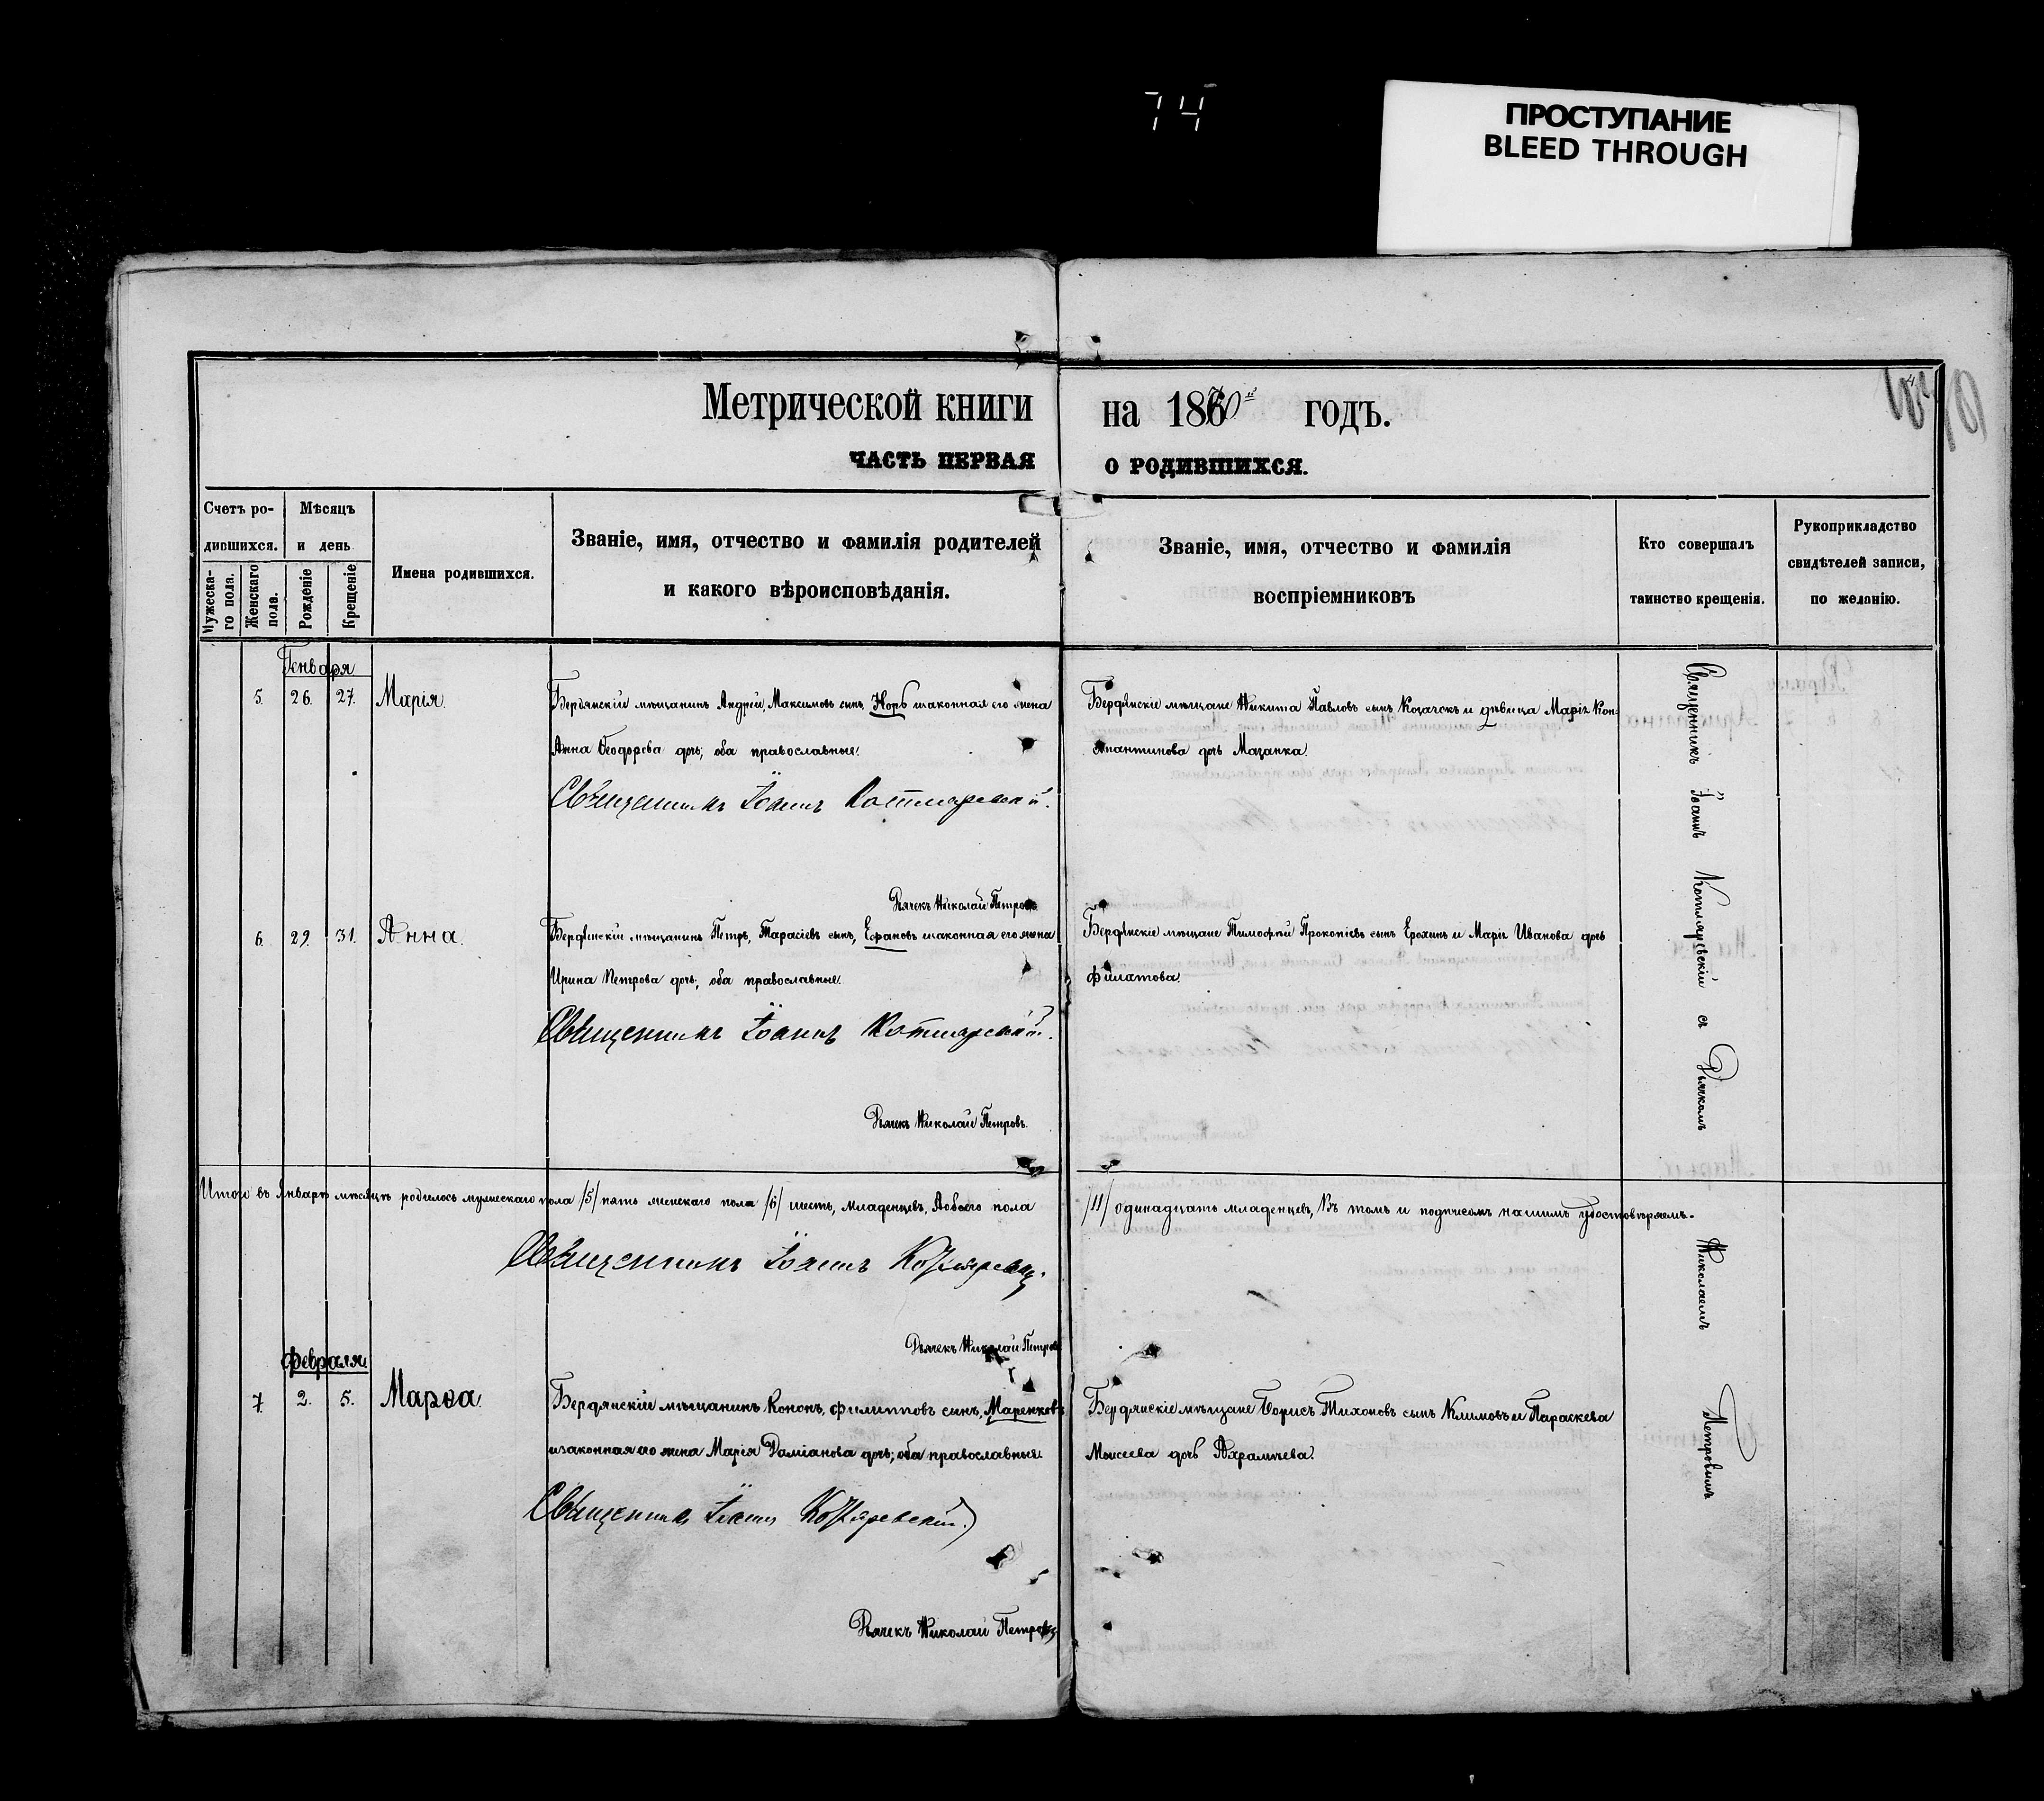 74
ПРОСТУПАНИЕ
BLEED THROUGH
Метрической книги на 1870й годъ.
ЧАСТЬ ПЕРВАЯ О РОДИВШИХСЯ.
Счетъ родившихся.
Мужескаго пола.
Женскаго пола.
Мѣсяцъ и день
Рожденіе
Крещеніе
Имена родившихся.
Званіе, имя, отчество и фамилія родителей
и какого вѣроисповѣданія.
Званіе, имя, отчество и фамилія
воспріемниковъ
Кто совершалъ
таинство крещенія.
Рукоприкладство
свидѣтелей записи,
по желанію.
Генваря
5. 26. 27. Марія.
Бердянскій мѣщанинъ Андрей, Максимовъ сынъ, Норъ изаконная его жена
Анна Ѳеодорова дочь; оба православные.
Священникъ Іоаннъ Котляревскій.
Дьячекъ Николай Петровъ
Бердянскіе мѣщане Никита Павловъ сынъ Козачекъ и дѣвица Марія Кон-
стантинова дочь Мазанка.
6. 29. 31. Анна.
Бердянскій мѣщанинъ Петръ, Тарасіевъ сынъ, изаконная его жена
Ирина Петрова дочь; оба православные.
Священникъ Іоаннъ Котляревскій.
Дьячекъ Николай Петровъ.
Бердянскіе мѣщане Тимофей Прокопіевъ сынъ Ерохинъ и Марія Иванова дочь
Филатова.
Итого въ Январѣ мѣсяцѣ родилось мужескаго пола /5/ пять женскаго пола /6/ шесть, младенцевъ, Аобоего пола /11/ одинадцать младенцевъ, Въ томъ и подписомъ нашимъ удостовѣряемъ.
Священникъ Іоаннъ Котляревскій
Дьячекъ Николай Петровъ
Февраля
7. 2. 5. Марѳа.
Бердянскій мѣщанинъ Кононъ, Филипповъ сынъ, Маренковъ
изаконная его жена Марія Даміанова дочь; оба православные.
Священникъ Іоаннъ Котляревскій.
Дьячекъ Николай Петровъ
Бердянскіе мѣщане Борисъ Тихоновъ сынъ Климовъ и Параскева
Моисеева дочь
Священникъ Іоаннъ Котляревскій съ Дьячкомъ
Николаемъ Петровымъ